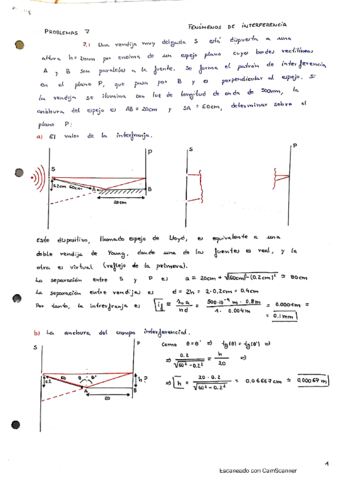 PROBLEMAS 7
FENÓMENOS DE INTERFERENCIA
7.1 Una rendija muy delgada S está dispuesta a una
altura h=2mm por encima de un espejo plano cuyos bordes rectilíneos
A y B son paralelos a la fuente. Se forma el patrón de interferencia
en el plano P, que pasa por B y es perpendicular al espejo. Si
la rendija se ilumina con luz de longitud de onda de 500nm, la
anchura del espejo es AB = 20cm y SA = 60cm, determinar sobre el
plano P:
a) El valor de la interfranja.
S
P
0.2cm
60cm
A
B
20cm
S
P
Este dispositivo, llamado espejo de Lloyd, es equivalente a una
doble rendija de Young, donde una de las fuentes es real, y la
otra es virtual (reflejo de la primera).
La separación entre S y P es a = 20cm + √(60cm)²-(0.2cm)² ≈ 80cm
La separación entre rendijas es d = 2h = 2·0.2cm = 0.4cm
Por tanto, la interfranja es i = λ₀a / nd = 500·10⁻⁹m · 0.8m / 1 · 0.004m = 0.0001m =
= 0.1mm
b) La anchura del campo interferencial.
S
P
0.2
60
θ
θ'
h?
A
20
Como θ = θ' ⇒ tg(θ) = tg(θ') ⇒
⇒ 0.2 / √60²-0.2² = h / 20 ⇒
⇒ h = 20·0.2 / √60²-0.2² = 0.06667cm ≈ 0.00067m
1
Escaneado con CamScanner